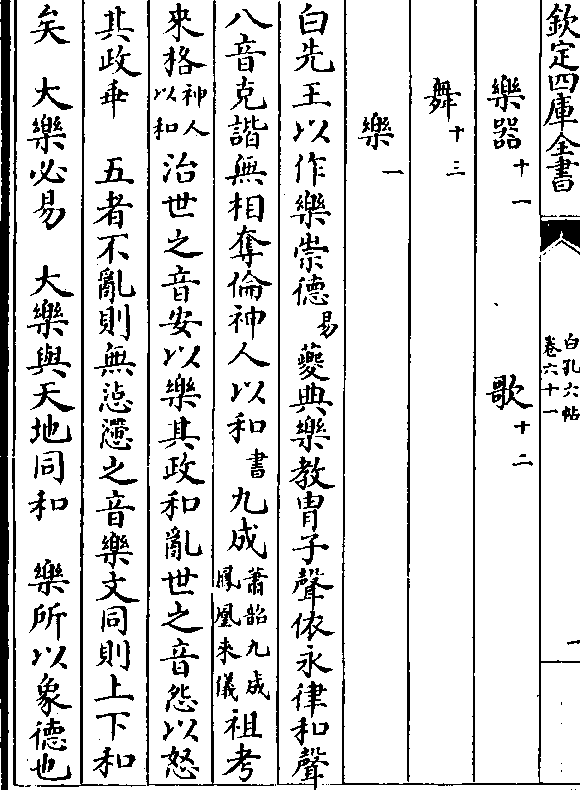 欽定四庫全書
白孔六帖
卷六十一
一
樂器十一 歌十二
舞十三
樂一
白先王以作樂崇德易夔典樂教胄子聲依永律和聲
八音克諧無相奪倫神人以和書九成蕭韶九成鳳凰來儀祖考
來格神人以和治世之音安以樂其政和亂世之音怨以怒
其政乖 五者不亂則無惉懘之音樂文同則上下和
矣 大樂必易 大樂與天地同和 樂所以象德也